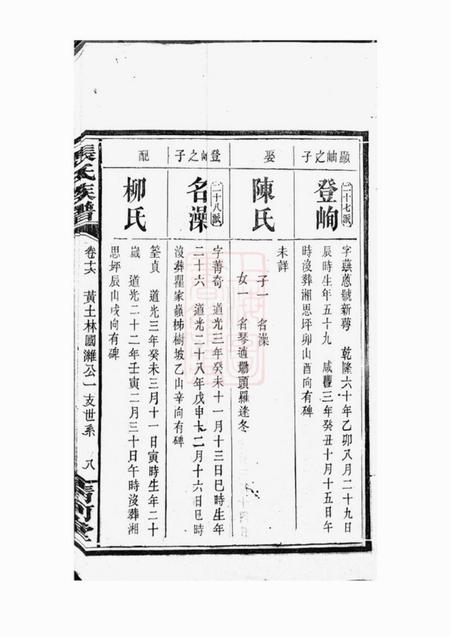 顯岫之子
二十七派
登峋
字 號新 乾隆六十年乙卯八月二十九日
辰時生年五十九 咸豐三年癸丑十月十五日午
時沒葬湘思坪卯山酉向有碑
娶
陳氏
未詳
子一 名澡
女一 名琴適 頭羅逢冬
登峋之子
二十八派
名澡
字菁奇 道光三年癸未十一月十三日巳時生年
二十六 道光二十八年戊申十二月十六日巳時
沒葬瞿家 樹坡乙山辛向有碑
配
柳氏
筌貞 道光三年癸未三月十一日寅時生年二十
歲 道光二十二年壬寅二月三十日午時沒葬湘
思坪辰山戌向有碑
張氏族譜
卷十六 黃土林國濰公一支世系 八
清河堂